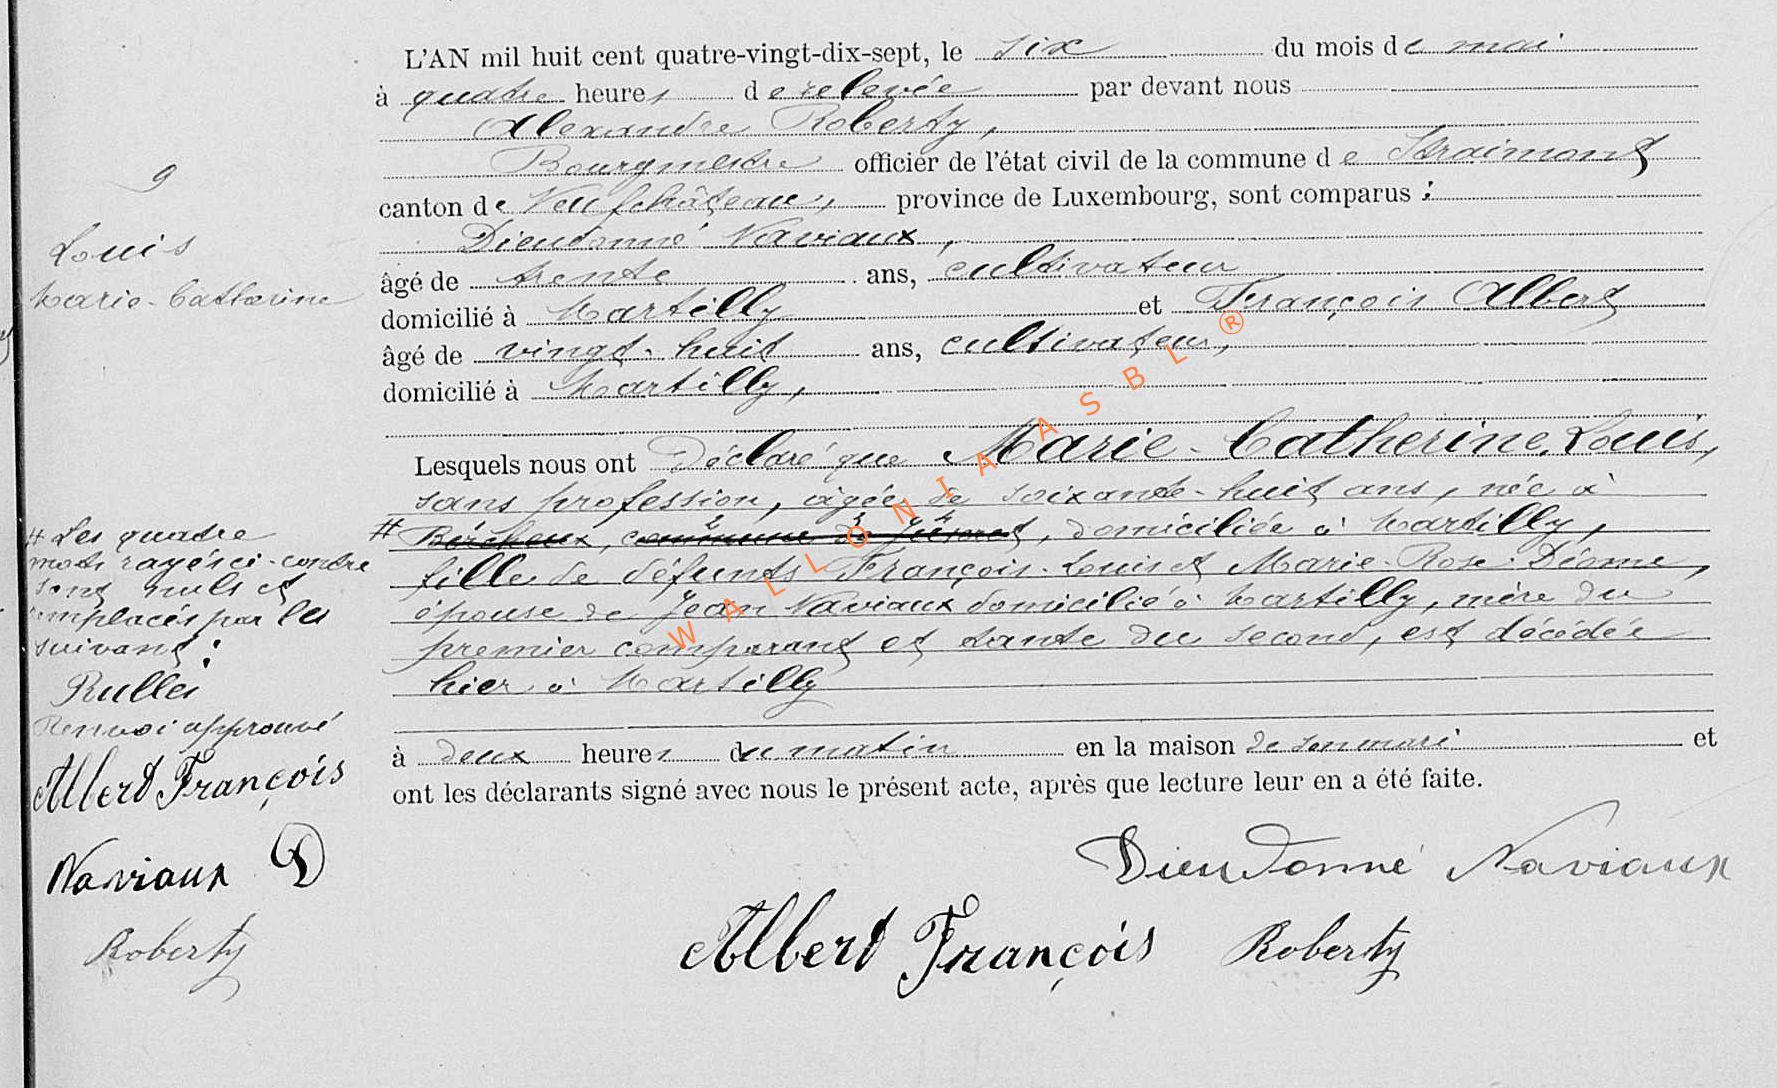 L'AN mil huit cent quatre-vingt-dix-sept, le six du mois de mai
à quatre heures de relevée par devant nous
Alexandre Roberty,
Bourgmestre officier de l'état civil de la commune de Straimont
canton de Neufchâteau, province de Luxembourg, sont comparus :
Dieudonné Naviaux,
âgé de trente ans, cultivateur
domicilié à Martilly et François Albert
âgé de vingt-huit ans, cultivateur,
domicilié à Martilly,
Lesquels nous ont déclaré que Marie-Catherine Louis,
sans profession, âgée de soixante-huit ans, née à
# Bercheux, commune de Juseret, domiciliée à Martilly,
fille de défunts François Louis et Marie-Rose
épouse de Jean Naviaux domicilié à Martilly, mère du
premier comparant et tante du second, est décédée
hier à Martilly
à deux heures du matin en la maison de son mari et
ont les déclarants signé avec nous le présent acte, après que lecture leur en a été faite.
Dieudonné Naviaux
Albert François Roberty
9
Louis
Marie-Catherine
# Les quatre
mots rayés ci-contre
sont nuls et
remplacés par les
suivants :
Rulles
Renvoi approuvé
Albert François
Naviaux D
Roberty
WALLONIA ASBL ®